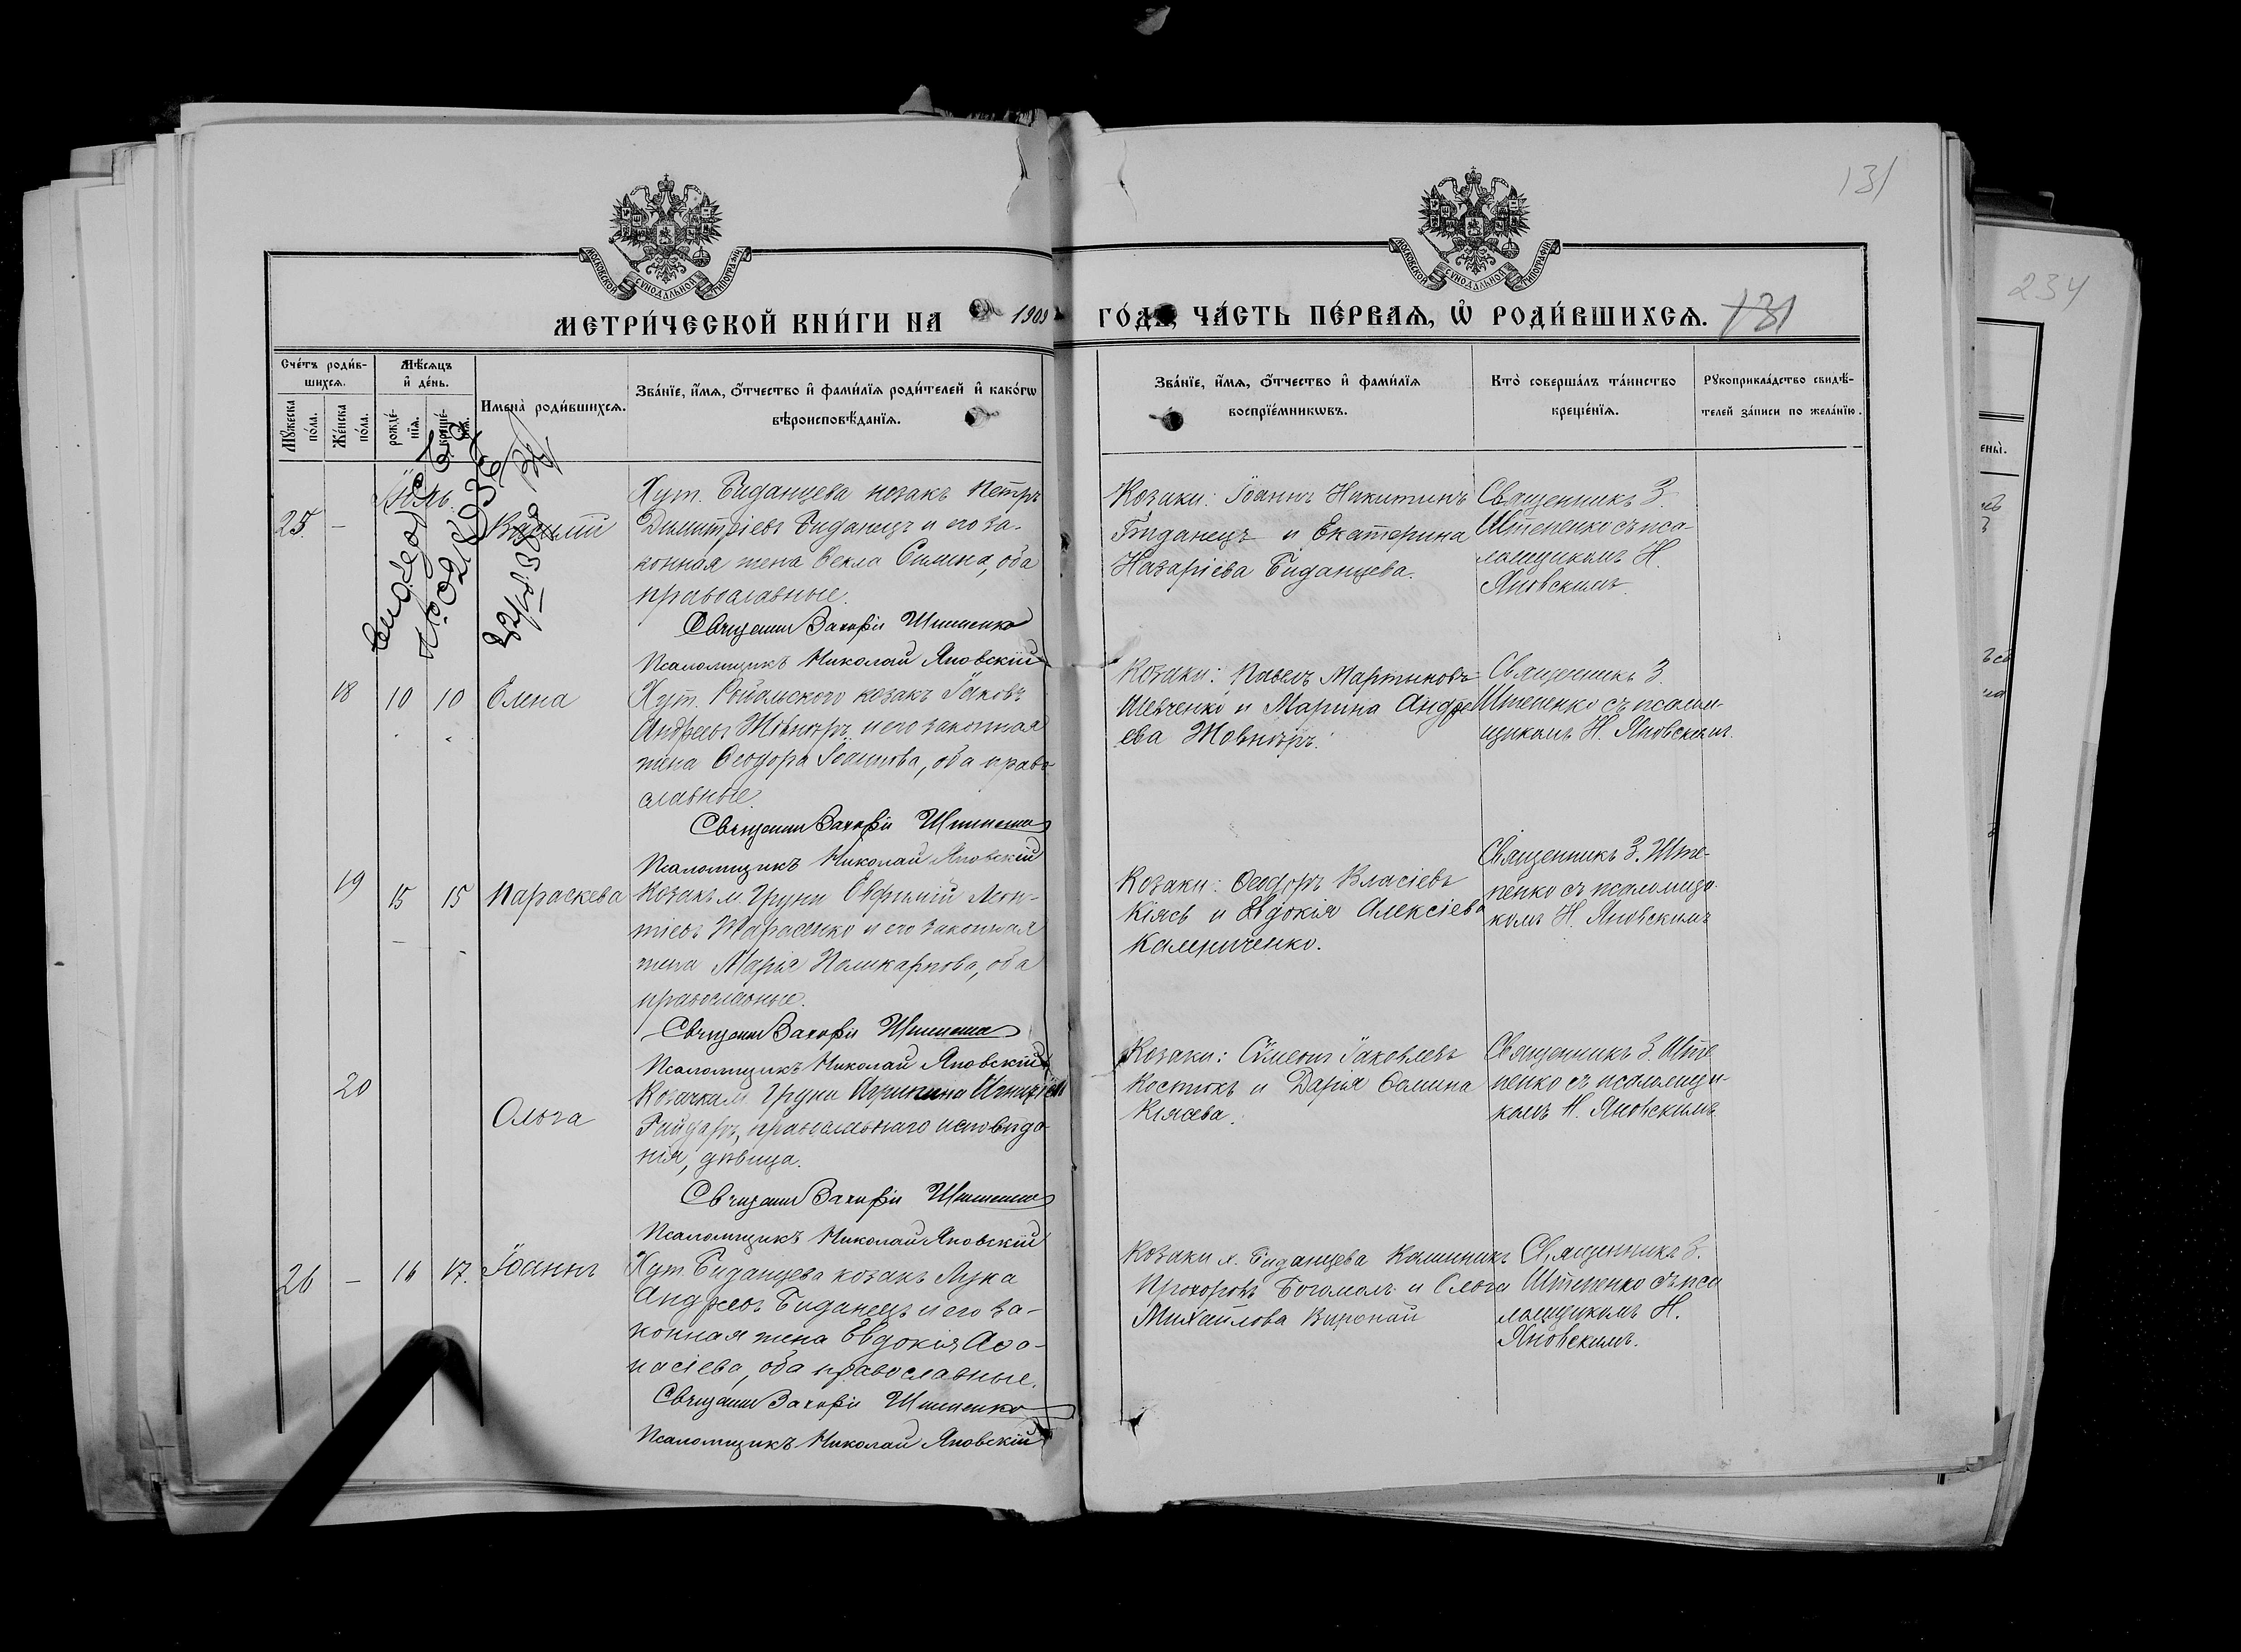 131
234
МОСКОВСКОЙ СѴНОДАЛЬНОЙ ТИПОГРАФІИ
МОСКОВСКОЙ СѴНОДАЛЬНОЙ ТИПОГРАФІИ
МЕТРИ́ЧЕСКОЙ КНИ́ГИ НА 1909
ГО́ДЪ, ЧА́СТЬ ПЕ́РВАѦ, Ѽ РОДИ́ВШИХСѦ. 131
Сче́тъ роди́в-
шихсѧ.
Мꙋ́жеска по́ла.
Же́нска по́ла.
Мѣ́сѧцъ
и҆ де́нь.
рожде́-
нїѧ.
креще́-
нїѧ.
Имена̀ роди́вшихсѧ.
Зва́нїе, и҆́мѧ, ѻ҆́тчество и҆ фами́лїѧ роди́телей и҆ како́гѡ
вѣроисповѣ́данїѧ.
Зва́нїе, и҆́мѧ, ѻ҆́тчество и҆ фами́лїѧ
воспрїе́мникѡвъ.
Кто̀ соверша́лъ та́инство
креще́нїѧ.
Рꙋкоприкла́дство свидѣ́-
телей за́писи по жела́нїю.
Іюль.
25. — Василій
Хут. Биданцева козакъ Петръ
Димитріевъ Биданецъ и его за-
конная жена Ѳекла Савина, оба
православные.
Священникъ Захарій Штепенко
Псаломщикъ Николай Яновскій
Козаки: Іоаннъ Никитинъ
Биданецъ и Екатерина
Назаріева Биданцева.
Священникъ З.
Штепенко съ пса-
ломщикомъ Н.
Яновскимъ.
18 10 10 Елена
Хут. козакъ Іаковъ
Андреевъ Жовниръ и его законная
жена Ѳеодора Іоаннова, оба право-
славные.
Священникъ Захарій Штепенко
Псаломщикъ Николай Яновскій
Козаки: Павелъ Мартиновъ
Шевченко и Марина Андре
ева Жовниръ.
Священникъ З.
Штепенко съ псалом-
щикомъ Н. Яновскимъ.
19 15 15 Параскева
Козакъ м. Груни Евфимій Леон-
тіевъ Тарасенко и его законная
жена Марія Поликарпова, оба
православные.
Священникъ Захарій Штепенко
Псаломщикъ Николай Яновскій
Козаки: Ѳеодоръ Власіевъ
Кіясь и Евдокія Алексіева
Калениченко.
Священникъ З.Ште-
пенко съ псаломщи-
комъ Н. Яновскимъ
20 Ольга
Козачка м. Груни Агрипина
православнаго исповѣда-
нія, дѣвица.
Священникъ Захарій Штепенко
Псаломщикъ Николай Яновскій
Козаки: Сѵмеонъ Іаковлевъ
Костюкъ и Дарія Савина
Кіясева.
Священникъ З.Ште
пенко съ псаломщи-
комъ Н. Яновскимъ
26 — 16 17. Іоаннъ
Хут. Биданцева козакъ Лука
Андреевъ Биданецъ и его за-
конная жена Евдокія Аѳа-
насіева, оба православные.
Священникъ Захарій Штепенко
Псаломщикъ Николай Яновскій
Козаки х. Биданцева Калиникъ
Прохоровъ Богомолъ и Ольга
Михайлова
Священникъ З.
Штепенко съ пса
ломщикомъ Н.
Яновскимъ.